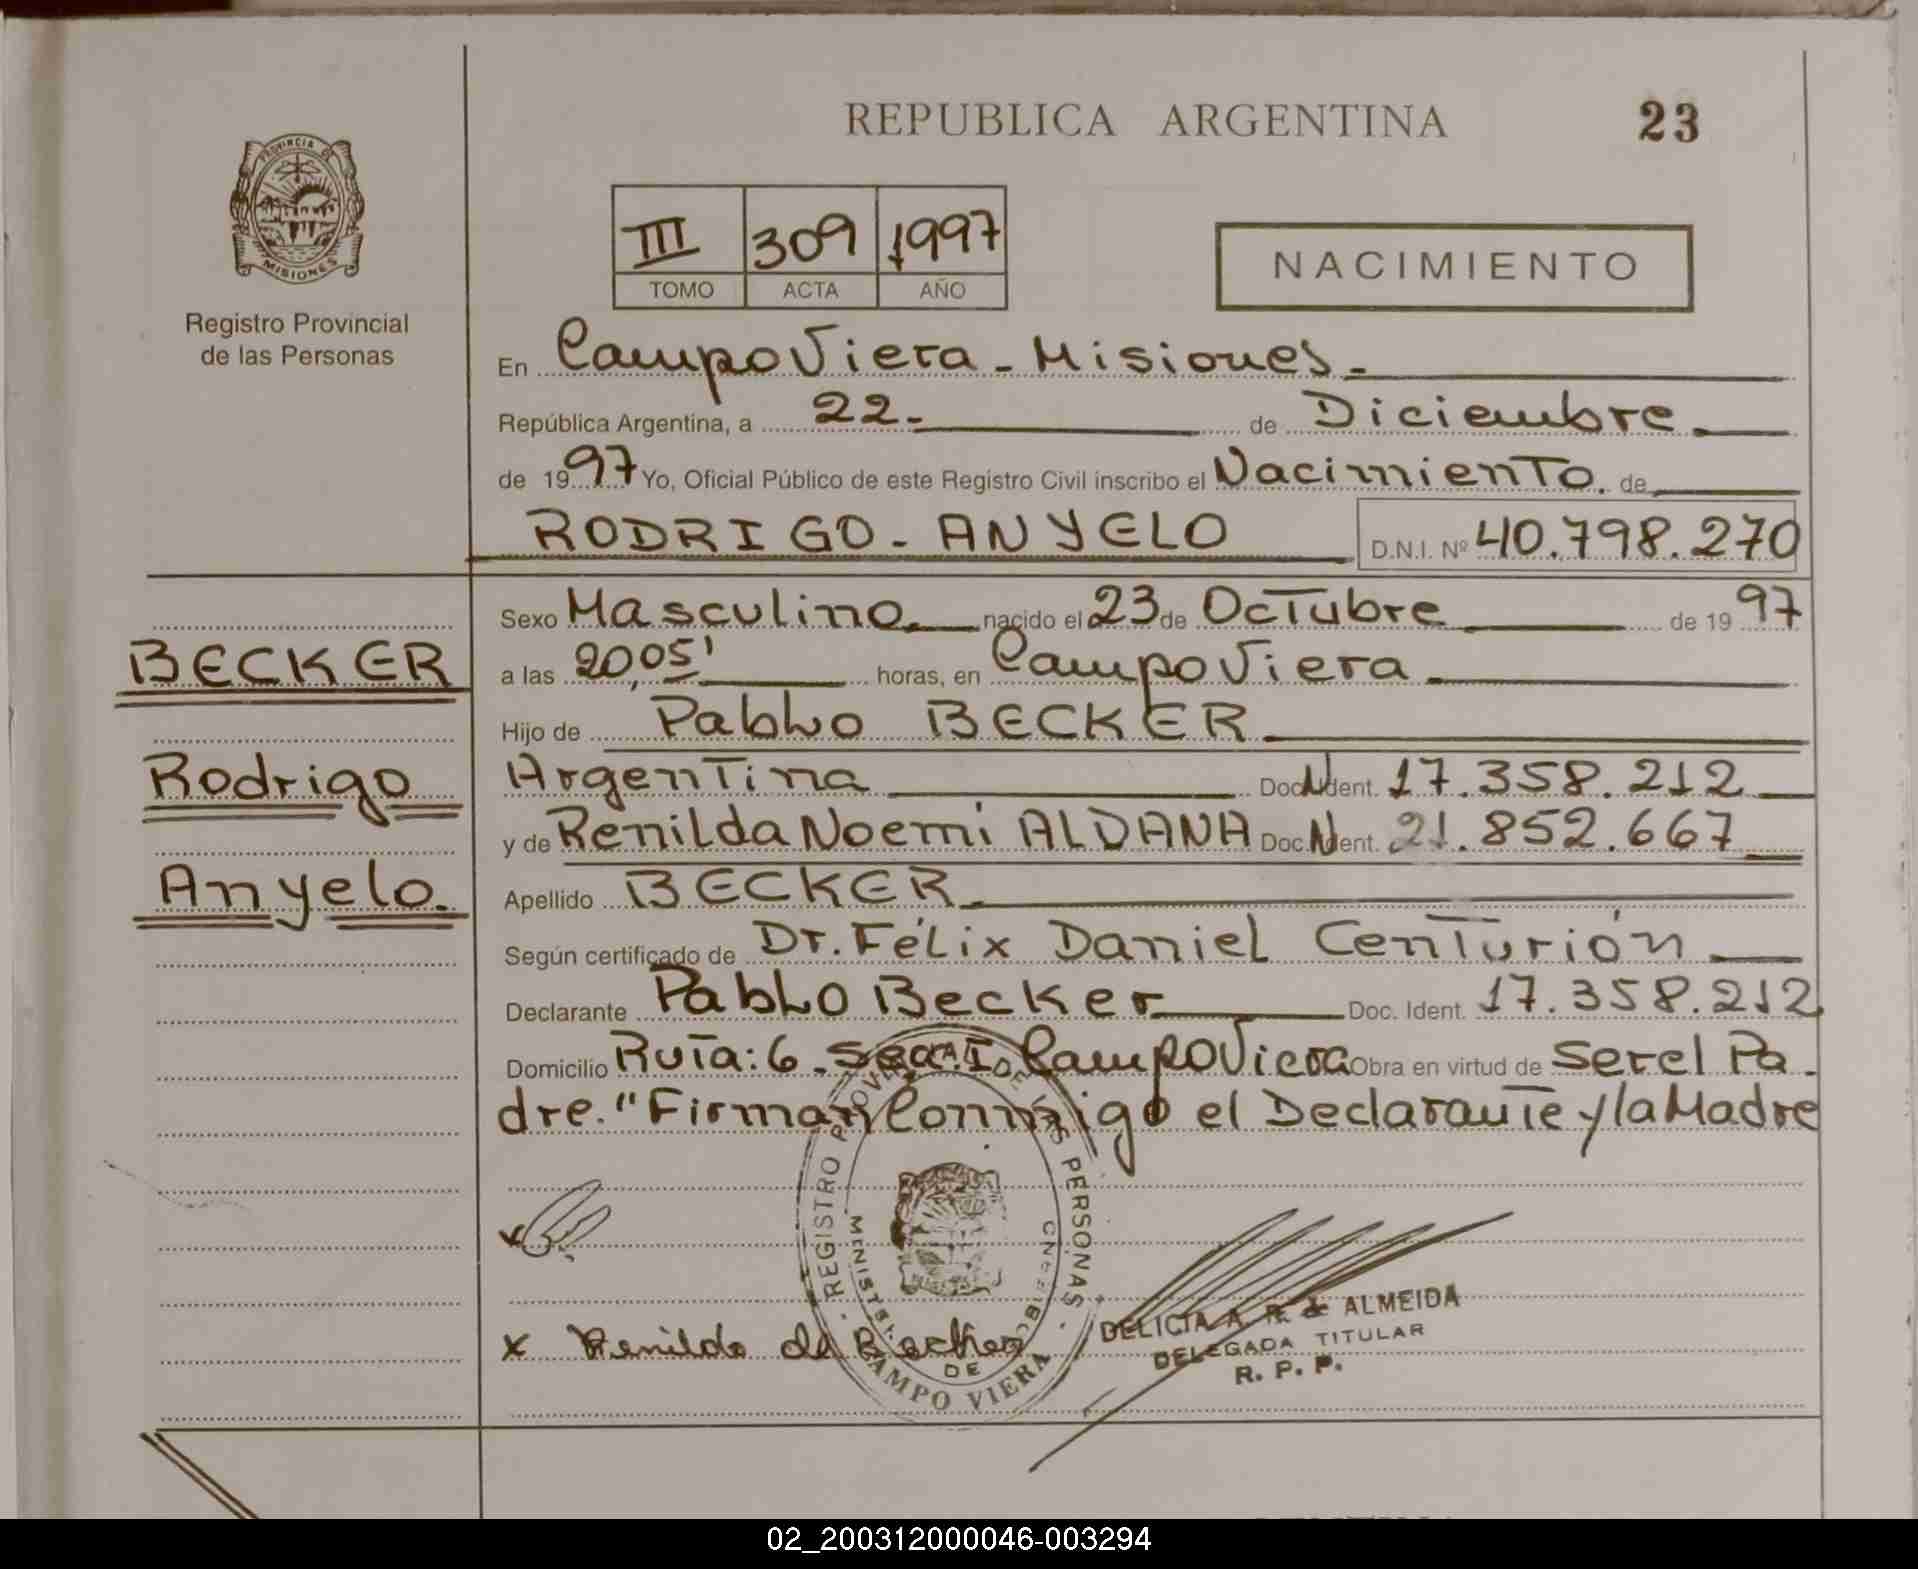 REPUBLICA ARGENTINA 23
PROVINCIA DE
MISIONES
Registro Provincial
de las Personas
III 309 1997
TOMO ACTA AÑO
NACIMIENTO
En Campo Viera - Misiones.-
República Argentina, a 22- de Diciembre
de 1997 Yo, Oficial Público de este Registro Civil inscribo el Nacimiento. de
RODRIGO - ANYELO D.N.I. Nº 40.798.270
BECKER
Rodrigo
Anyelo.
Sexo Masculino. nacido el 23 de Octubre de 1997
a las 20,05' horas, en Campo Viera
Hijo de Pablo BECKER
Argentina Doc. Ident. N 17.358.212
y de Renilda Noemi ALDANA Doc. Ident. N 21.852.667
Apellido BECKER
Según certificado de Dr. Félix Daniel Centurión
Declarante Pablo Becker Doc. Ident. 17.358.212
Domicilio Ruta: 6. Secc. I. Campo Viera Obra en virtud de ser el Pa-
dre." Firman Conmigo el Declarante y la Madre
REGISTRO PROVINCIAL DE LAS PERSONAS
CAMPO VIERA
DE
x
x Renilda de Becker
DELICIA A. R. de ALMEIDA
DELEGADA TITULAR
R. P. P.
02_200312000046-003294